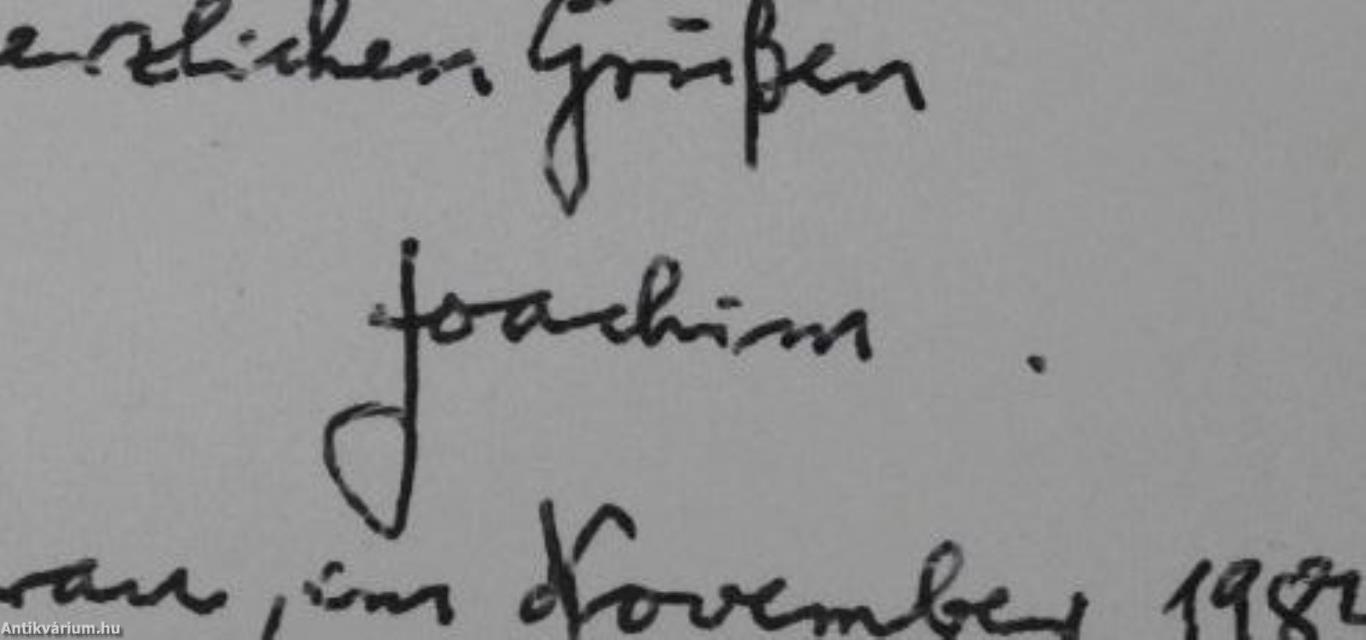 erzlichen Grüßen
Joachim
, im November 198
Antikvárium.hu